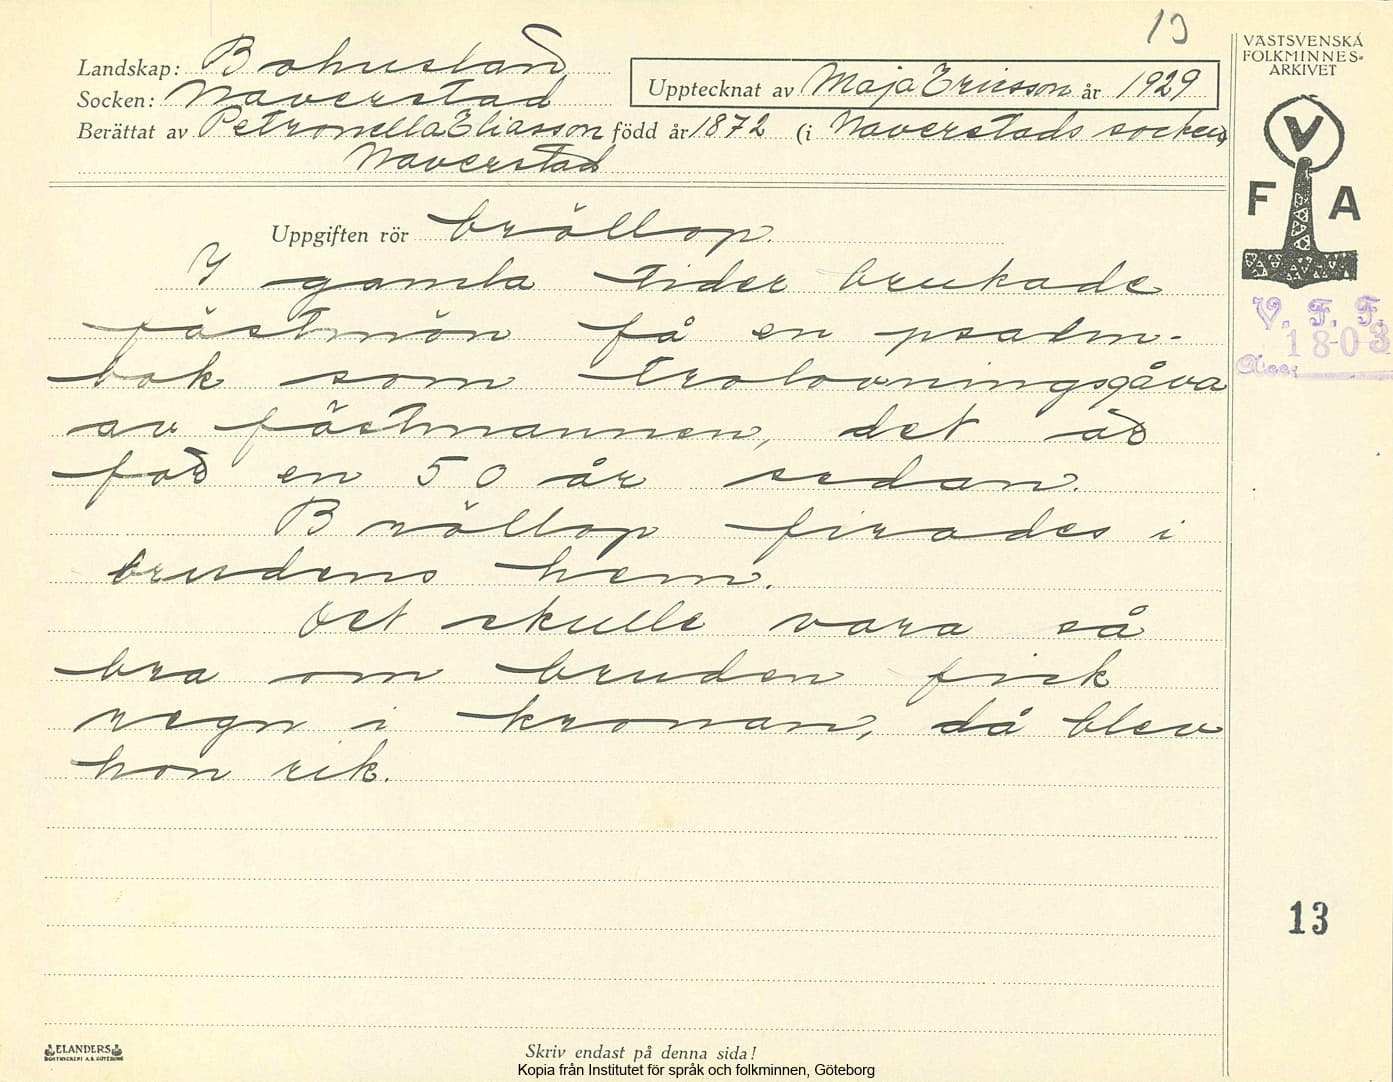 13
Landskap: Bohuslän
Socken: Naverstad
Upptecknat av Maja Ericsson år 1929
Berättat av Petronella Eliasson född år 1872 (i Naverstads socken,
Naverstad
VÄSTSVENSKA
FOLKMINNES-
ARKIVET
V
F A
V. F. F.
1803
Acc:
Uppgiften rör bröllop.
I gamla tider brukade
fästmön få en psalm-
bok som trolovningsgåva
av fästmannen, det är
för en 50 år sedan.
Bröllop firades i
brudens hem.
Det skulle vara så
bra om bruden fick
regn i kronan, då blev
hon rik.
13
ELANDERS
BOKTRYCKERI A.B. GÖTEBORG
Skriv endast på denna sida!
Kopia från Institutet för språk och folkminnen, Göteborg